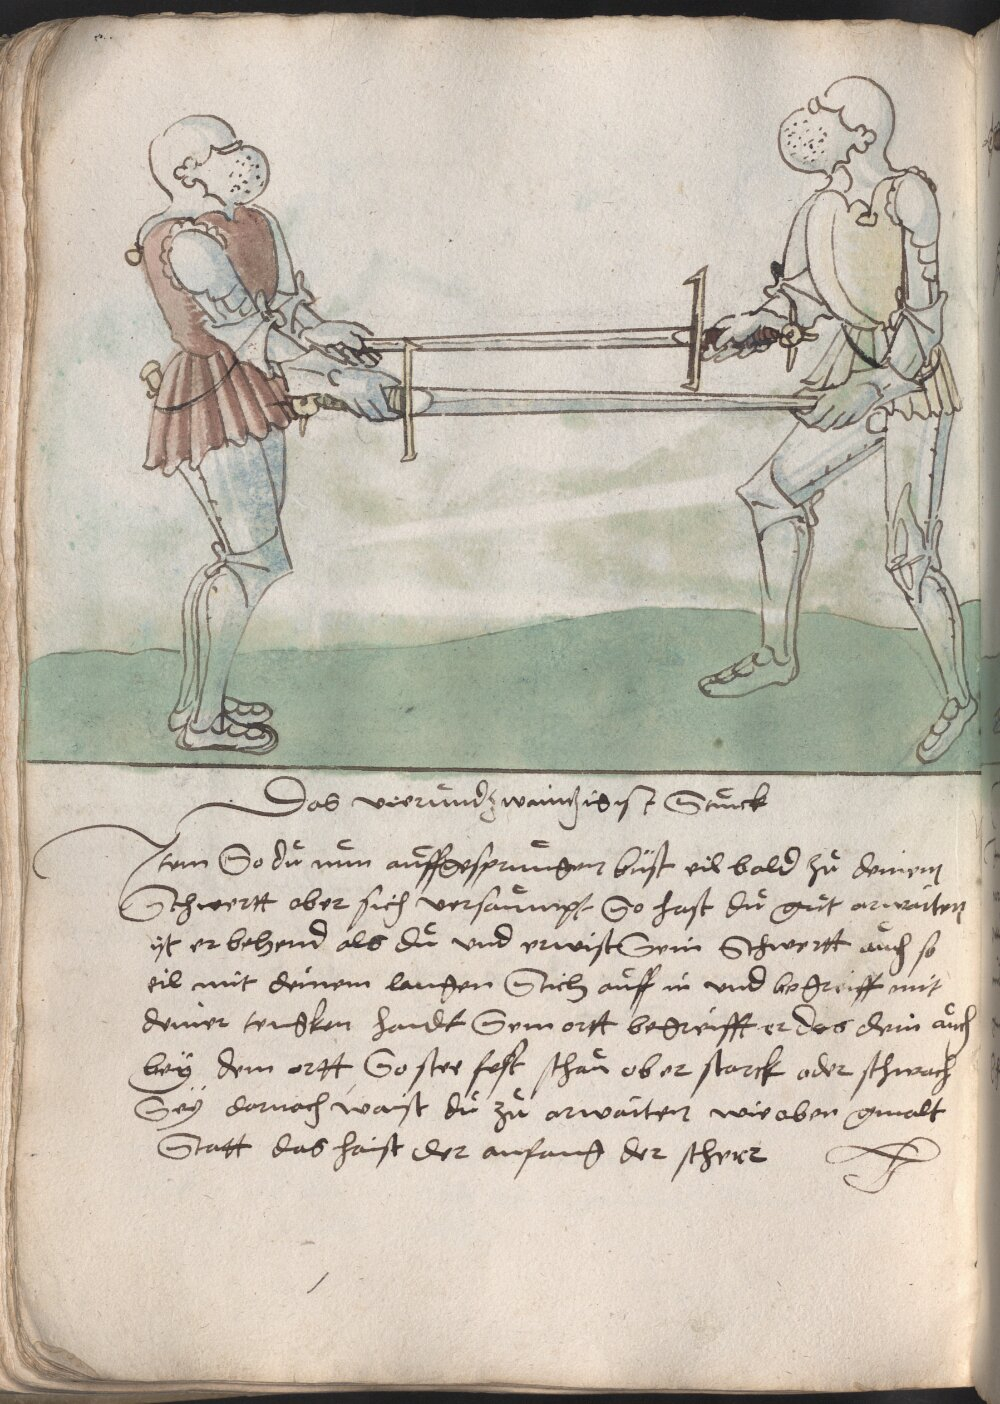 Das vierundzwaintzigist Stuck
Item So du nun auffgesprungen bist eil bald zu deinem
Schwertt ober sich versaumpt So hast du gut arwaiten
ist er behend als du und erwist Sein Schwertt auch so
eil mit deinem langen Stich auff in und begreiff mit
deiner tengken handt Sein ortt begreifft er das dein auch
bey dem ortt So stee fest schau ob er starck oder schwach
Sey darnach waist du zu arwaiten wie oben gmalt
Statt das haist der anfang der scherr